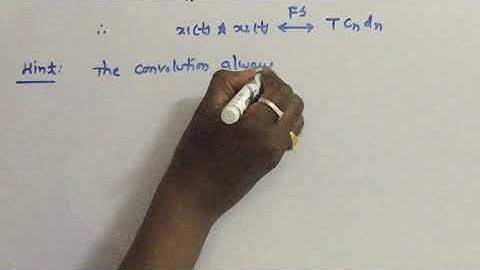 ∴ x1(t) * x2(t) ⟷ FS T Cn dn
Hint: The convolution alway